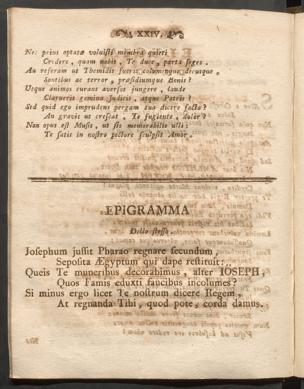 XXIV.
Ne: prius optata voluisti membra quieri
Credere, quam nobis, Te duce, parta seges.
An referam ut Themidis fueris columnque decusque,
Sontibus ac terror, præsidiumque Bonis?
Utque animos curans aversos jungere, laude
Clarueris gemina Judicis, atque Patris?
Sed quid ego imprudens pergam tua dicere facta?
An gravis ut crescat, Te fugiente, dolor?
Non opus est Musis, ut sis memorabilis ullis:
Te satis in nostro pectore sculpsit Amor.
EPIGRAMMA
Dello stesso
Josephum jussit Pharao regnare secundum,
Seposita Ægyptum qui dape restituit:
Queis Te muneribus decorabimus, alter IOSEPH,
Quos Famis eduxti faucibus incolumes?
Si minus ergo licet Te nostrum dicere Regem,
At regnanda Tibi, quod pote, corda damus.